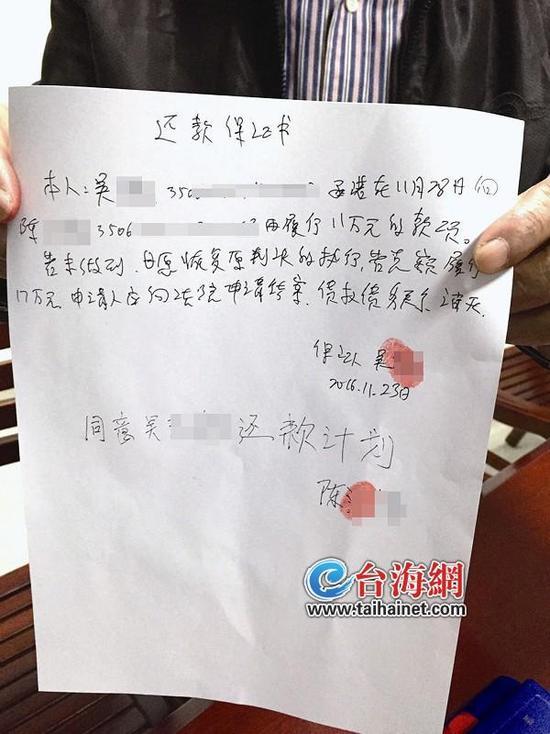 还款保证书
本人:吴 350 承诺在11月28日向
陈 3506 履行11万元的款项。
若未做到,自愿恢复原判决的执行,若足额履行
11万元 申请人应向法院申请结案,债权债务关系消灭.
保证人 吴
2016.11.23日
同意吴 还款计划
陈
台海網
www.taihainet.com